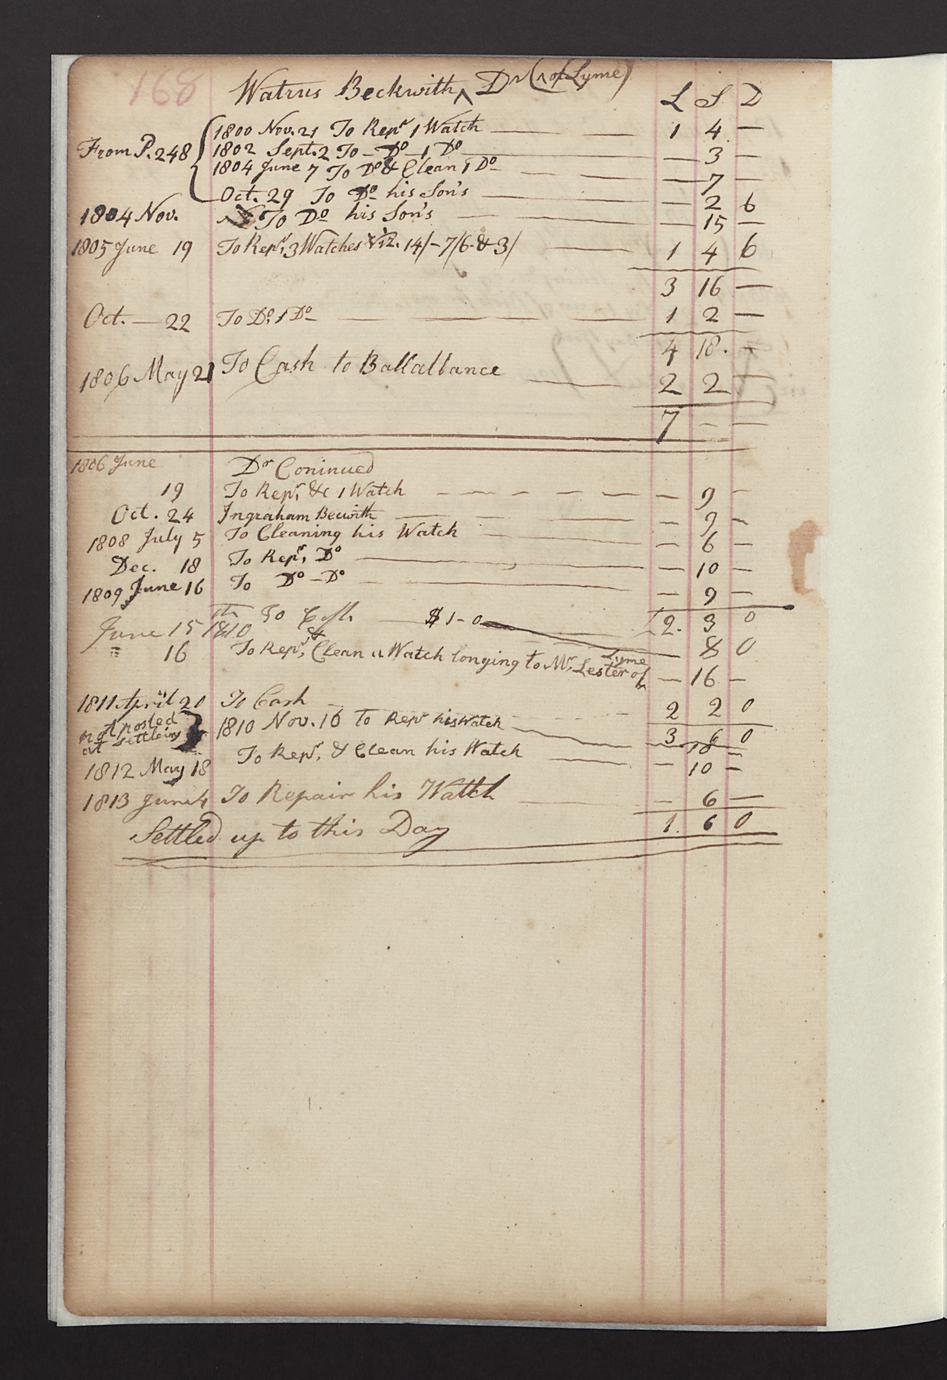 168 Watrus Beckwith ^ Dr (^ of Lyme)
L S D
From P. 248 { 1800 Nov. 21 To Repr 1 Watch — 1 4 —
1802 Sept. 2 To - Do 1 Do — 3 —
1804 June 7 To Do & Clean 1 Do — 7 —
Oct. 29 To Do his Son's — 2 6
1804 Nov. To Do his Son's — 15 —
1805 June 19 To Repr. 3 Watches Viz. 14/- 7/6 & 3/ — 1 4 6
3 16 —
Oct. — 22 To Do. 1 Do — 1 2 —
4 18 . —
1806 May 21 To Cash to Ballallance — 2 2 —
7 — —
1806 June Dr Coninued
19 To Repr. &c 1 Watch — — 9 —
Oct. 24 Ingraham Becwith — — 9 —
1808 July 5 To Cleaning his Watch — — 6 —
Dec. 18 To Repr. Do — — 10 —
1809 June 16 To Do - Do — — 9 —
June 15th 1810 To Cash $1-0 — £2. 3 0
8 0
" 16 To Repr. & Clean a Watch longing to Mr. Lester of Lyme — 16 —
1811 April 20 To Cash — 2 2 0
not posted at settleing } 1810 Nov. 16 To Repr his Watch — 3 6 0
1812 May 18 To Repr. & Clean his Watch — — 10 —
1813 June 4 To Repair his Watch — — 6 —
Settled up to this Day 1. 6 0